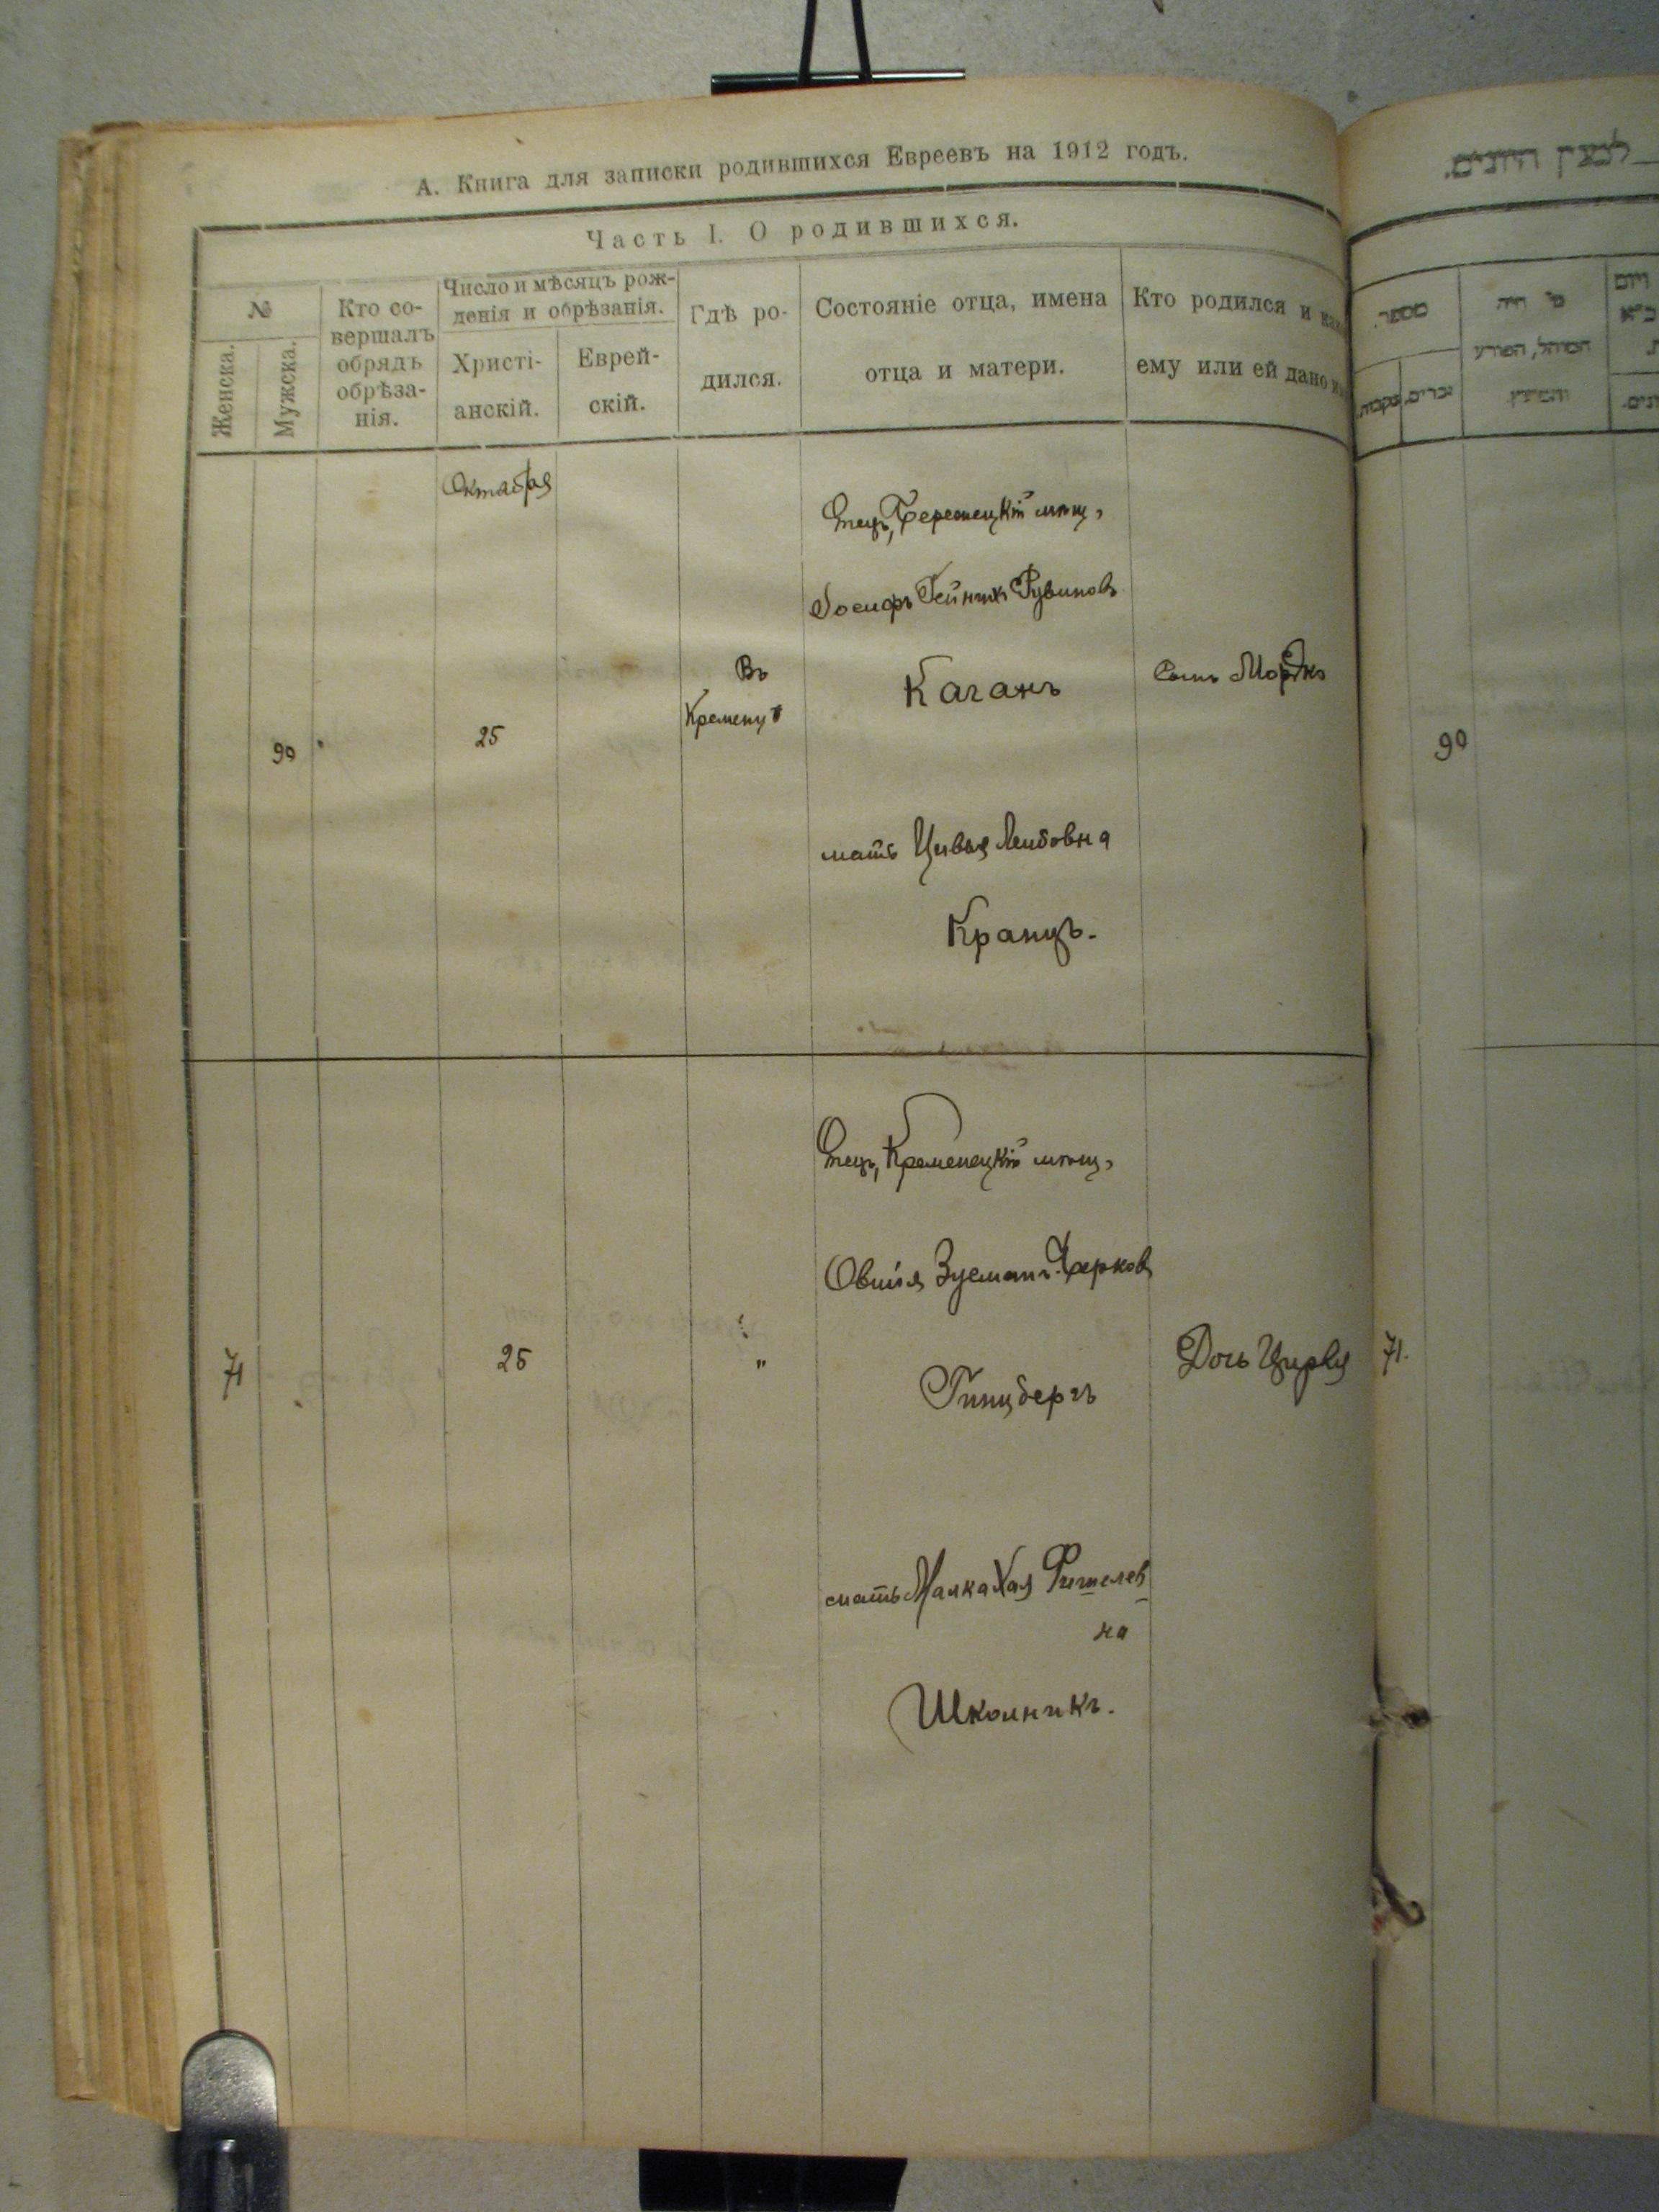 А. Книга для записки родившихся Евреевъ на 1912 годъ.
Часть I. О родившихся.
№
Женска.
Мужска.
Кто со-
вершалъ
обрядъ
обрѣза-
нія.
Число и мѣсяцъ рож-
денія и обрѣзанія.
Христі-
анскій.
Еврей-
скій.
Гдѣ ро-
дился.
Состояніе отца, имена
отца и матери.
Кто родился и
ему или ей дано
Октября
90
25
Въ
Кременцѣ
Отецъ, мѣщ,
Іосифъ Рувиновъ
Каганъ
мать Цивья Лейбовна
Кранцъ.
Сынъ Мордко
71
25
"
Отецъ, Кременецкій мѣщ,
Овшія Зусманъ Берковъ
Гинцбергъ
мать Малка Хая Фишелев
на
Школникъ.
Дочь
מספר.
זכרים.
נקבות.
מי היה
המוהל, הפורע
והמוצץ.
90
71.